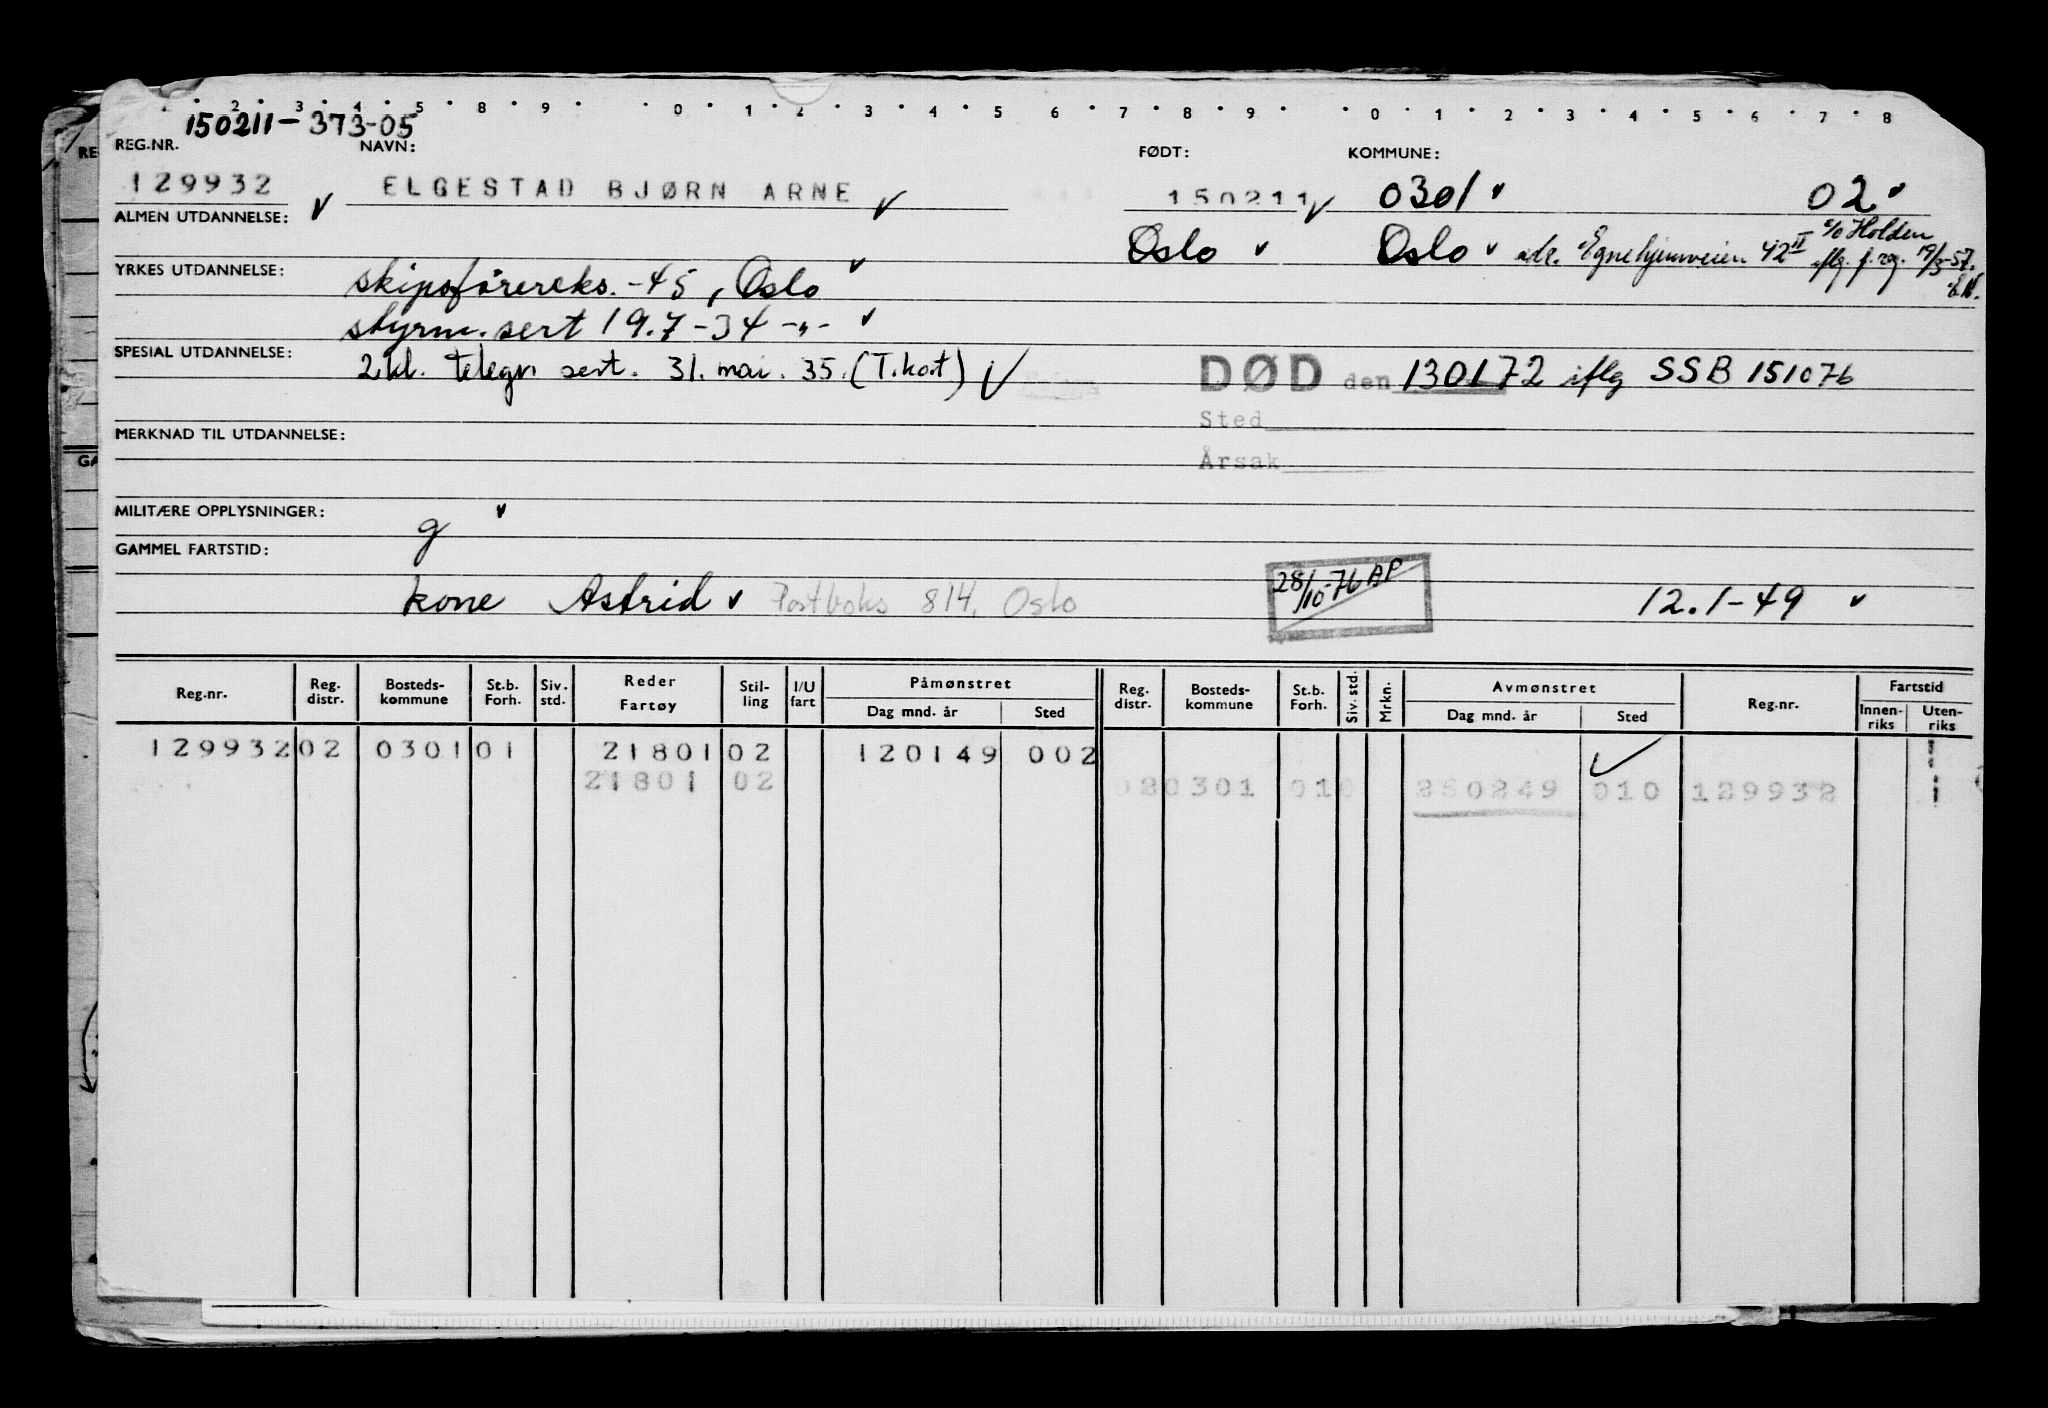 1 2 3 4 5 8 9 0 1 2 3 4 5 6 7 8 9 0 1 2 3 4 5 6 7 8
150211-373-05
REG.NR. NAVN: FØDT: KOMMUNE:
129932 ELGESTAD BJØRN ARNE 150211 0301 02
ALMEN UTDANNELSE:
Oslo Oslo adr. Egnehjemveien 42 II c/o Holden
iflg. f.reg. 19/3-57.
YRKES UTDANNELSE: skipsførereks. -45, Oslo
styrm. sert 19.7-34 -"-
SPESIAL UTDANNELSE: 2 kl. telegr. sert. 31. mai. 35. (T.kort)
DØD den 130172 iflg SSB 151076
Sted
Årsak
MERKNAD TIL UTDANNELSE:
MILITÆRE OPPLYSNINGER: g
GAMMEL FARTSTID:
kone Astrid Postboks 814, Oslo 28/10-76 AP 12.1-49
Reg.nr. Reg. distr. Bosteds-kommune St.b. Forh. Siv. std. Reder Fartøy Stil-ling I/U fart Påmønstret Dag mnd. år Sted Reg. distr. Bosteds-kommune St.b. Forh. Siv. std. Mrkn. Avmønstret Dag mnd. år Sted Reg.nr. Fartstid Innen-riks Uten-riks
129932 02 0301 01 21801 02 120149 002 1
21801 02 02 0301 010 250249 010 129932 1